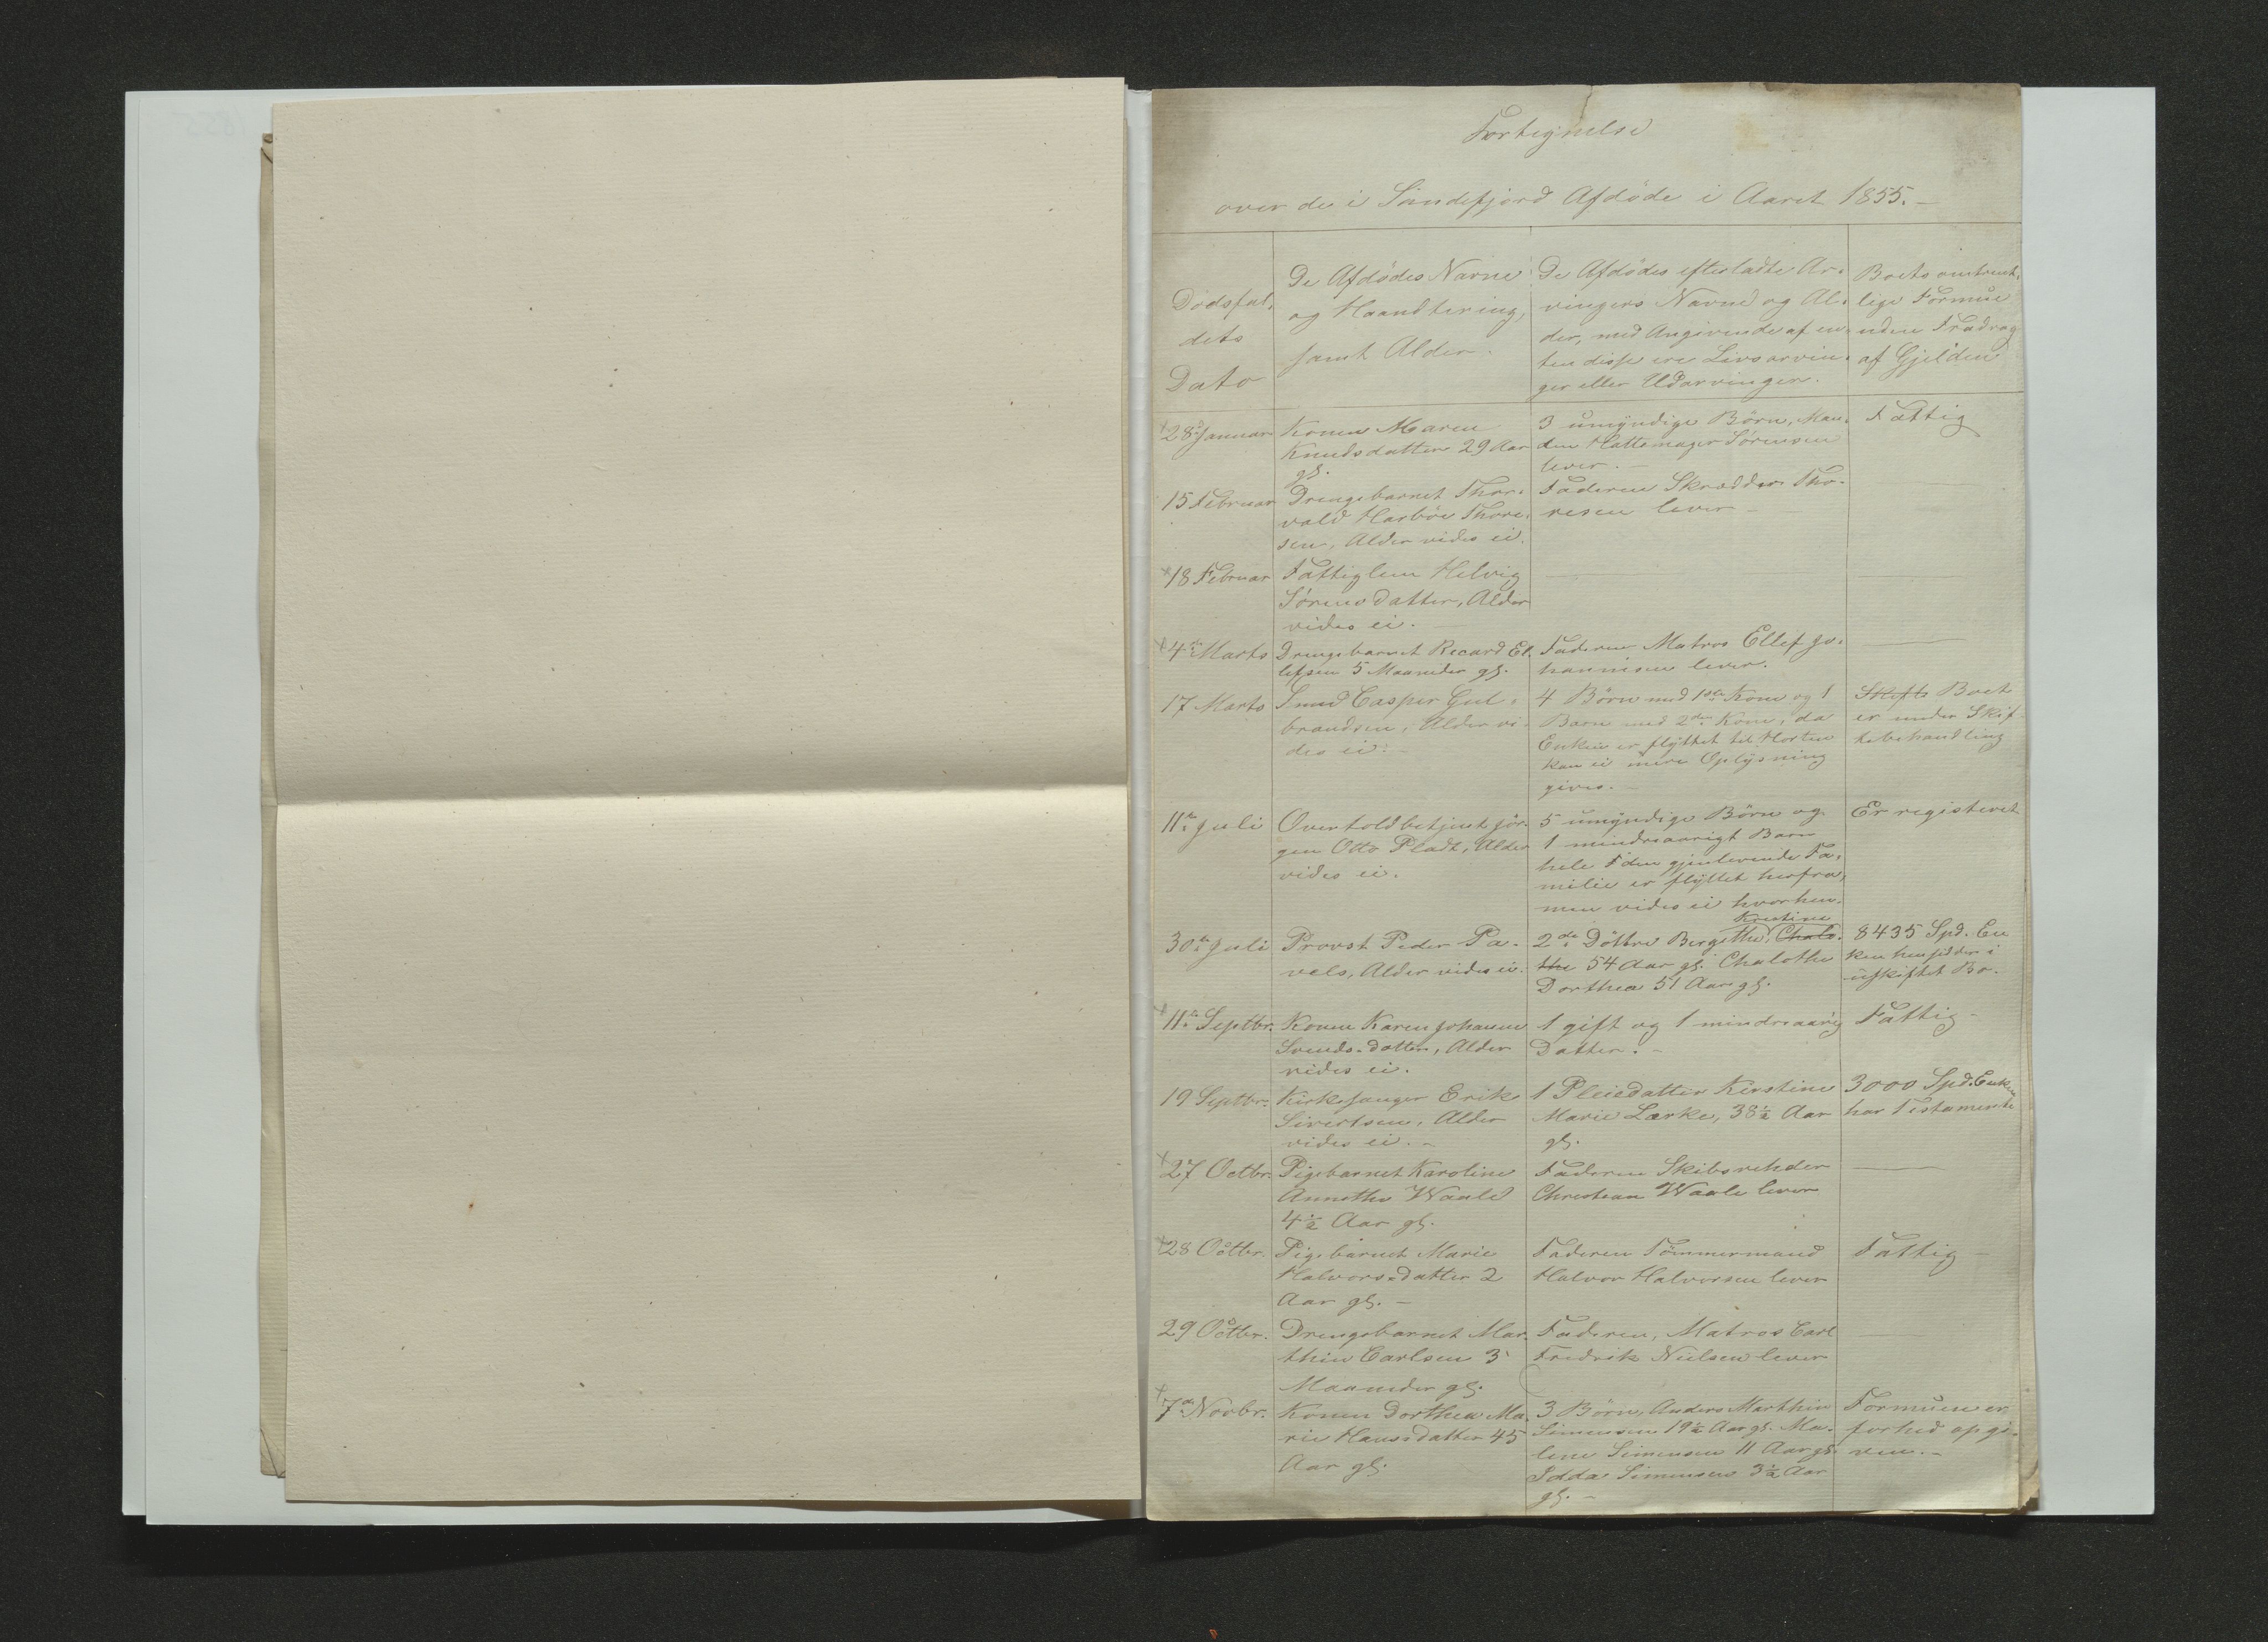 Fortegnelse
over de i Sandefjord Afdøde i Aaret 1855.
Dødsfal-
dets
Dato
De Afdødes Navne
og Haandtering,
samt Alder.
De Afdødes efterladte Ar-
vingers Navne og Al-
der, med Angivende af en-
ten disse ere Livsarvin-
ger eller Udarvinger.
Boets omtrent-
lige Formue
uden Fradrag
af Gjelden
28 Januar
Konen Maren
Knudsdatter 29 Aar
gl.
3 umyndige Børn, Man-
den Hattemager Sørensen
lever.
Fattig
15 Februar
Drengebarnet Thor-
vald Harboe Thore-
sen, Alder vides ei.
Faderen Skrædder Tho-
resen lever
18 Februar
Fattiglem Helvig
Sørensdatter, Alder
vides ei.
4de Marts
Drengebarnet Recard El-
lefsen 5 Maaneder gl.
Faderen Matros Ellef Jo-
hannisen lever.
17 Marts
Smed Casper Gul-
brandsen, Alder vi-
des ei.
4 Børn med 1ste Kone og 1
Barn med 2den Kone, da
Enken er flyttet til Horten
kan ei mere Oplysning
gives.
Skifte Boet
er under Skif-
tebehandling
11te Juli
Overtoldbetjent Jör-
gen Otto Pladt, Alder
vides ei.
5 umyndige Børn og
1 mindreaarigt Barn
hele den gjenlevende Fa-
milie er flyttet herfra,
men vides ei hvorhen.
Er registeret
30te Juli
Provst Peder Pa-
vels, Alder vides ei.
Kirstine
2de Döttre Bergitha, Chalo-
the 54 Aar gl. Chalothe
Dorthea 51 Aar gl.
8435 Spd. En-
ken hensidder i
uskiftet Bo.
11te Septbr.
Konen Karen Johanne
Svends-datter, Alder
vides ei.
1 gift og 1 mindreaarig
Datter.
Fattig
19 Septbr.
Kirkesanger Erik
Sivertsen, Alder
vides ei.
1 Pleiedatter Kirstine
Marie Lærke, 38½ Aar
gl.
3000 Spd. Enken
har Testamente
27 Octbr.
Pigebarnet Karoline
Annethe Waale
4½ Aar gl.
Faderen Skibsrehder
Christian Waale lever
28 Octbr.
Pigebarnet Marie
Halvorsdatter 2
Aar gl.
Faderen Tömmermand
Halvor Halvorsen lever
Fattig
29 Octbr.
Drengebarnet Mar-
thin Carlsen 3
Maaneder gl.
Faderen, Matros Carl
Fredrik Nielsen lever
7de Novbr.
Konen Dorthea Ma-
rie Hansdatter 45
Aar gl.
3 Børn, Anders Marthin
Simensen 19½ Aar gl. Ma-
lene Simensen 11 Aar gl.
Edda Simensen 3½ Aar
gl.
Formuen er
forhed opgi-
ven.